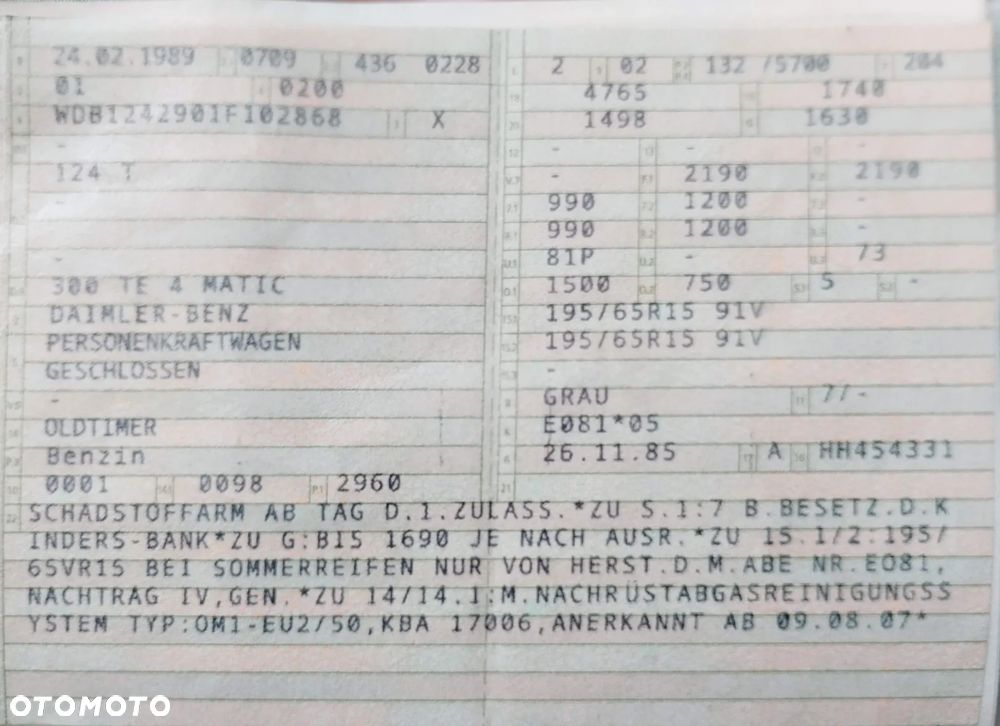 24.02.1989 0709 436 0228
01 0200
WDB1242901F102868 X
-
124 T
-
-
300 TE 4 MATIC
DAIMLER-BENZ
PERSONENKRAFTWAGEN
GESCHLOSSEN
-
OLDTIMER
Benzin
0001 0098 P.1 2960
2 02 132 /5700 204
4765 1740
1498 1630
- - -
- F.1 2190 2190
990 1200 -
990 1200 -
81P - 73
1500 750 5 -
195/65R15 91V
195/65R15 91V
-
GRAU 7/-
E081*05
26.11.85 17 A HH454331
21
22 SCHADSTOFFARM AB TAG D.1.ZULASS.*ZU S.1:7 B.BESETZ.D.K
INDERS-BANK*ZU G:BIS 1690 JE NACH AUSR.*ZU 15.1/2:195/
65VR15 BEI SOMMERREIFEN NUR VON HERST.D.M.ABE NR.E081,
NACHTRAG IV,GEN.*ZU 14/14.1:M.NACHRÜSTABGASREINIGUNGSS
YSTEM TYP:OM1-EU2/50,KBA 17006,ANERKANNT AB 09.08.07*
OTOMOTO